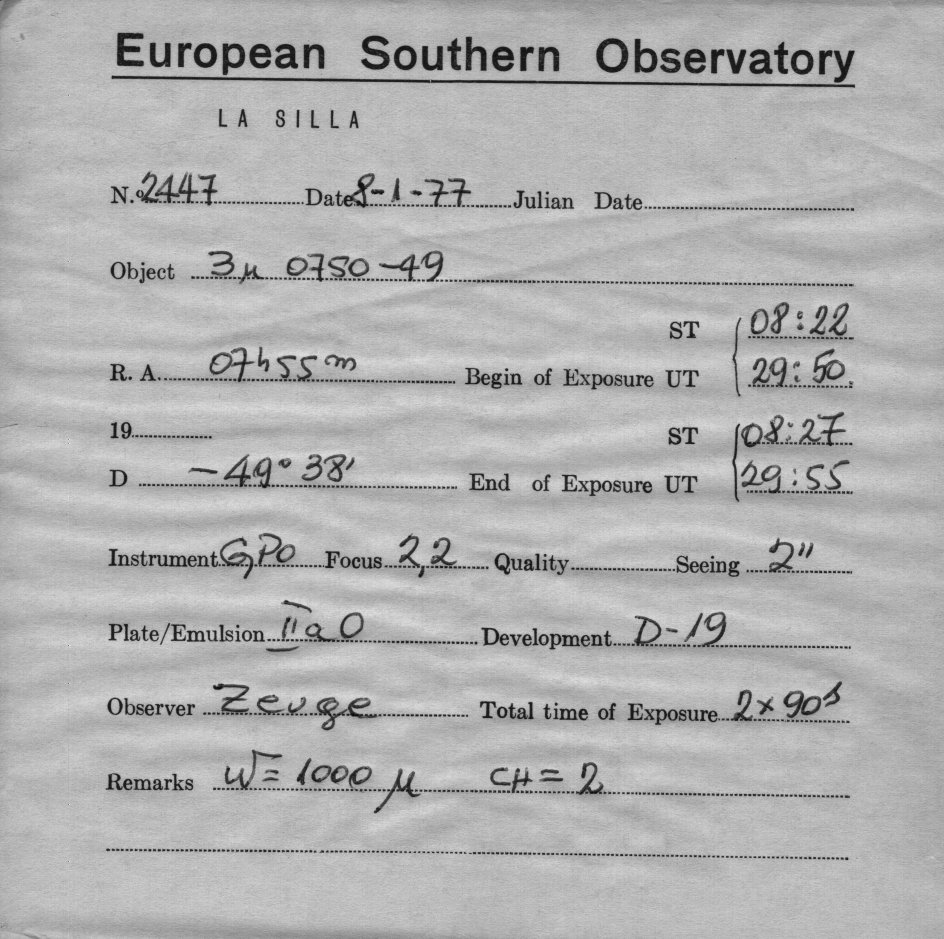 European Southern Observatory
LA SILLA
N.o 2447 Date 8-1-77 Julian Date
Object 3µ 0750-49
ST 08:22
R. A. 07h55m Begin of Exposure UT 29:50
19 ST 08:27
D -49° 38' End of Exposure UT 29:55
Instrument GPO Focus 2,2 Quality Seeing 2"
Plate/Emulsion IIaO Development D-19
Observer Zeuge Total time of Exposure 2x90s
Remarks W=1000 µ CH=2